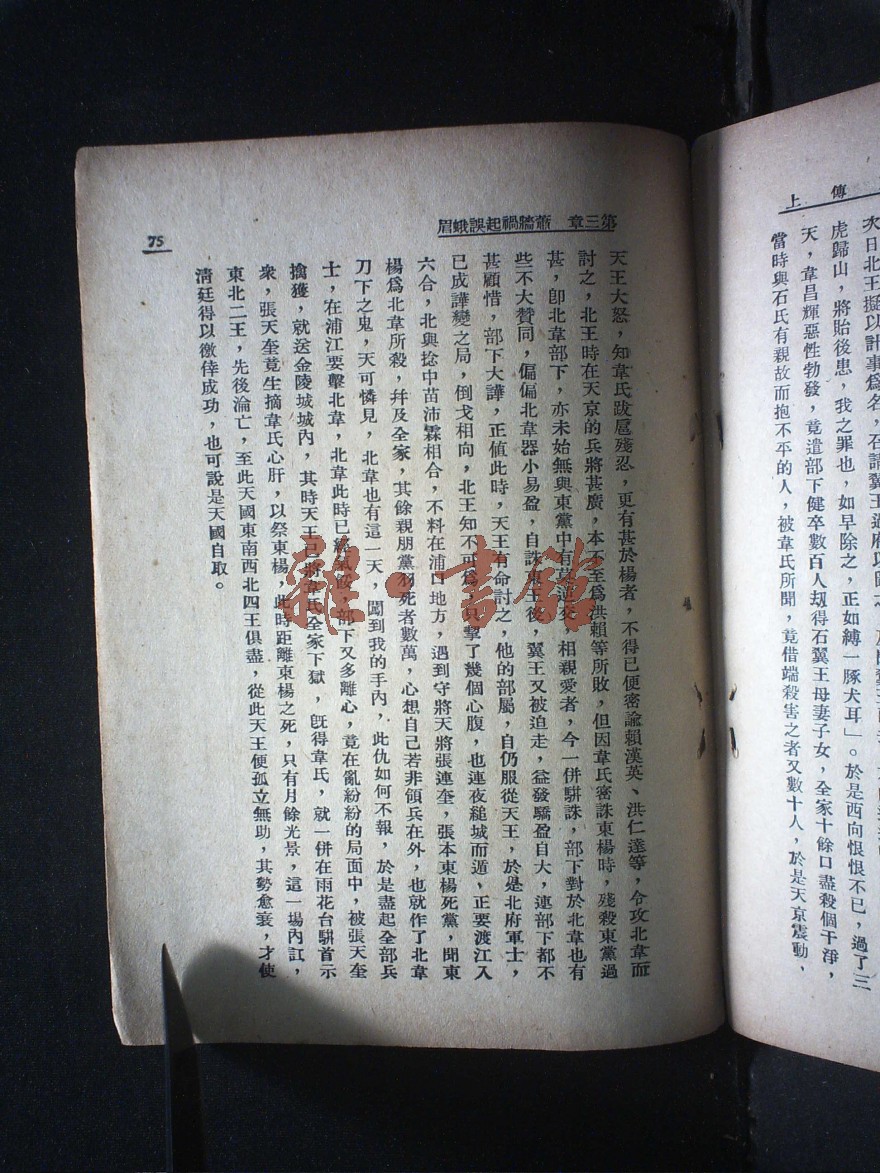 上　傳
次日北王擬以計事爲名，召請翼王過府以
虎歸山，將貽後患，我之罪也，如早除之，正如縛一豚犬耳」。於是西向恨恨不已，過了三
天，韋昌輝惡性勃發，竟遣部下健卒數百人刼得石翼王母妻子女，全家十餘口盡殺個干淨，
當時與石氏有親故而抱不平的人，被韋氏所聞，竟借端殺害之者又數十人，於是天京震動，
第三章　蕭牆禍起誤蛾眉
75
天王大怒，知韋氏跋扈殘忍，更有甚於楊者，不得已便密諭賴漢英、洪仁達等，令攻北韋而
討之，北王時在天京的兵將甚廣，本不至爲洪賴等所敗，但因韋氏密誅東楊時，殘殺東黨過
甚，卽北韋部下，亦未始無與東黨中有莫逆交，相親愛者，今一併騈誅，部下對於北韋也有
些不大贊同，偏偏北韋器小易盈，自誅東王後，翼王又被迫走，益發驕盈自大，連部下都不
甚顧惜，部下大譁，正値此時，天王有命討之，他的部屬，自仍服從天王，於是北府軍士，
已成譁變之局，倒戈相向，北王知不可爲，只擊了幾個心腹，也連夜縋城而遁，正要渡江入
六合，北與捻中苗沛霖相合，不料在浦口地方，遇到守將天將張連奎，張本東楊死黨，聞東
楊爲北韋所殺，幷及全家，其餘親朋黨羽死者數萬，心想自己若非領兵在外，也就作了北韋
刀下之鬼，天可憐見，北韋也有這一天，闖到我的手內，此仇如何不報，於是盡起全部兵
士，在浦江要擊北韋，北韋此時已終氣餒，部下又多離心，竟在亂紛紛的局面中，被張天奎
擒獲，就送金陵城城內，其時天王已將韋氏全家下獄，旣得韋氏，就一併在雨花台騈首示
衆，張天奎竟生摘韋氏心肝，以祭東楊，此時距離東楊之死，只有月餘光景，這一場內訌，
東北二王，先後淪亡，至此天國東南西北四王俱盡，從此天王便孤立無助，其勢愈衰，才使
淸廷得以徼倖成功，也可說是天國自取。
雜·書館